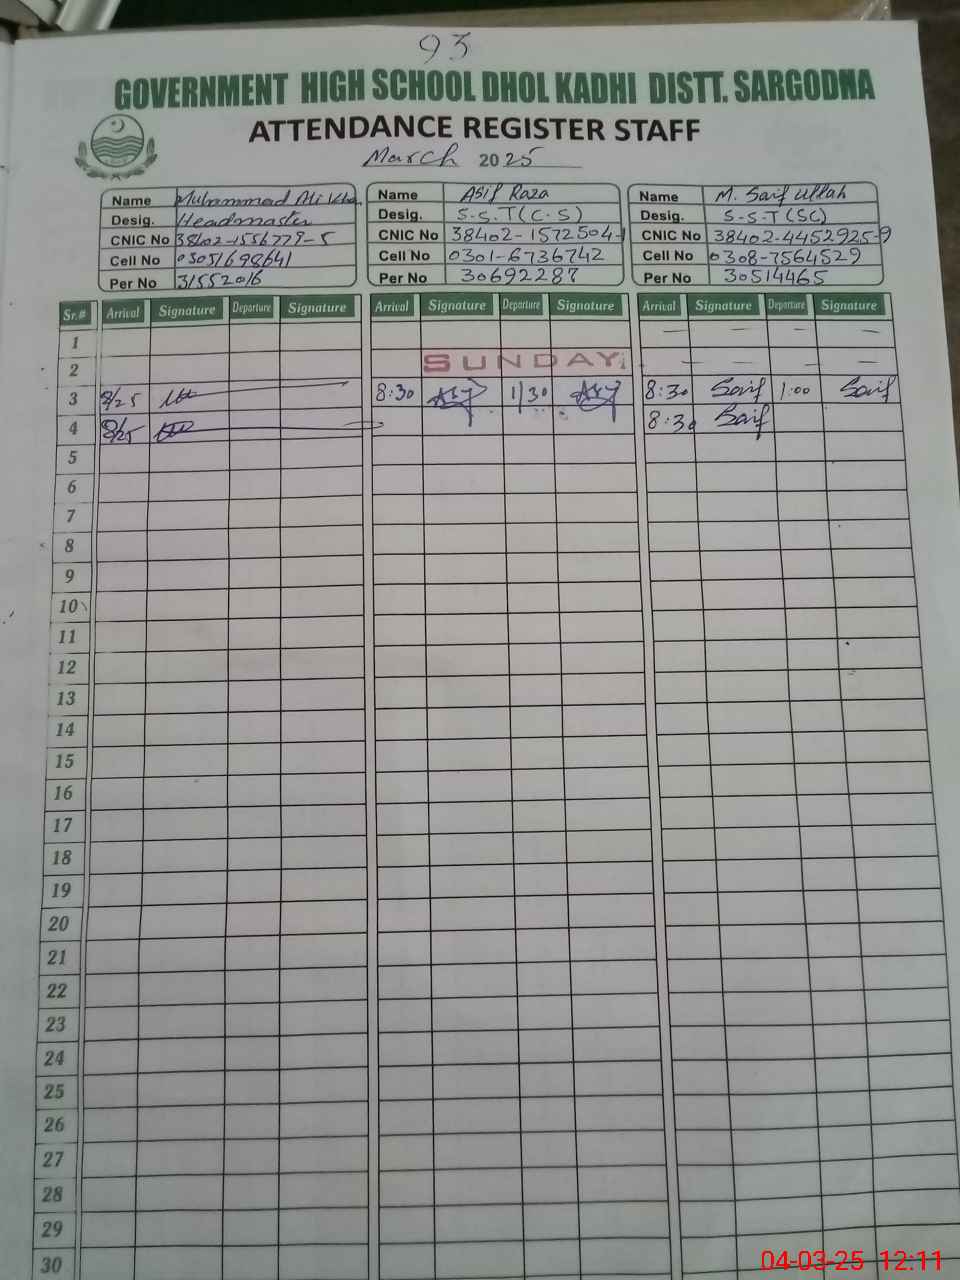 93
GOVERNMENT HIGH SCHOOL DHOL KADHI DISTT. SARGODHA
ATTENDANCE REGISTER STAFF
March 2025
Name Muhammad Ali Khan Name Asif Raza Name M. Saif ullah
Desig. Headmaster Desig. S-S.T(C.S) Desig. S-S-T(SC)
CNIC No 38402-1556779-5 CNIC No 38402-1572504-1 CNIC No 38402-4452925-9
Cell No 03051698641 Cell No 0301-6736742 Cell No 0308-7564529
Per No 31552016 Per No 30692287 Per No 30514465
Sr.# Arrival Signature Departure Signature Arrival Signature Departure Signature Arrival Signature Departure Signature
1 — — — —
2 SUNDAY — — — —
3 8/25 8:30 1/30 8:30 Saif 1:00 Saif
4 8/25 8:30 Saif
5
6
7
8
9
10
11
12
13
14
15
16
17
18
19
20
21
22
23
24
25
26
27
28
29
30
04-03-25 12:11